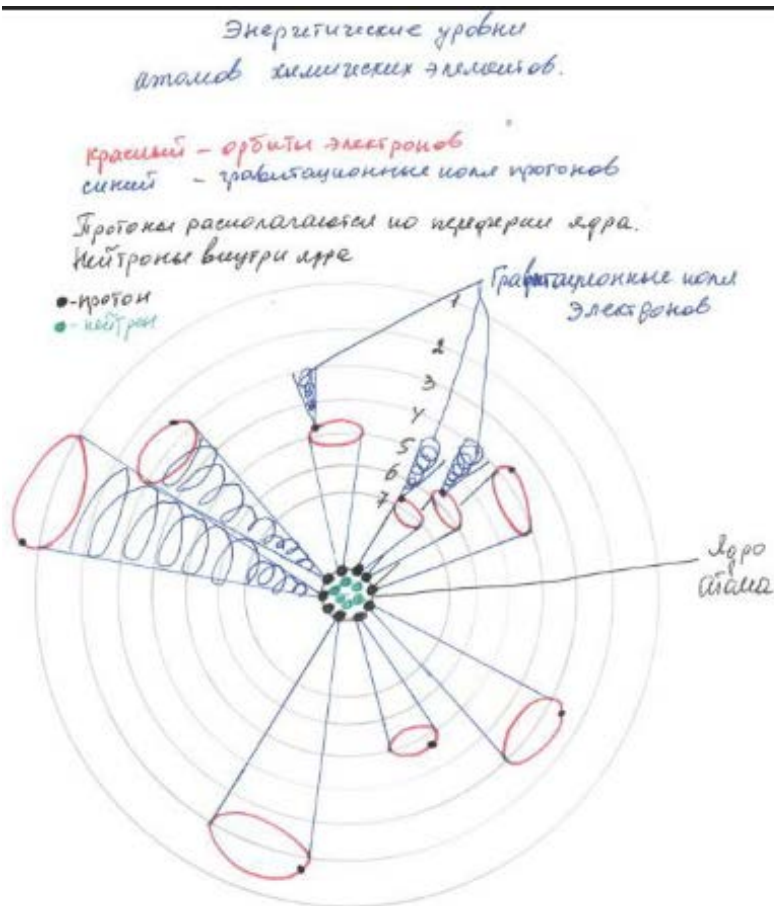 Энергетические уровни
атомов химических элементов.
красный – орбиты электронов
синий – гравитационные поля протонов
Протоны располагаются по периферии ядра.
Нейтроны внутри ядра
- протон
- нейтрон
Гравитационные поля
электронов
1
2
3
4
5
6
7
Ядро
атома